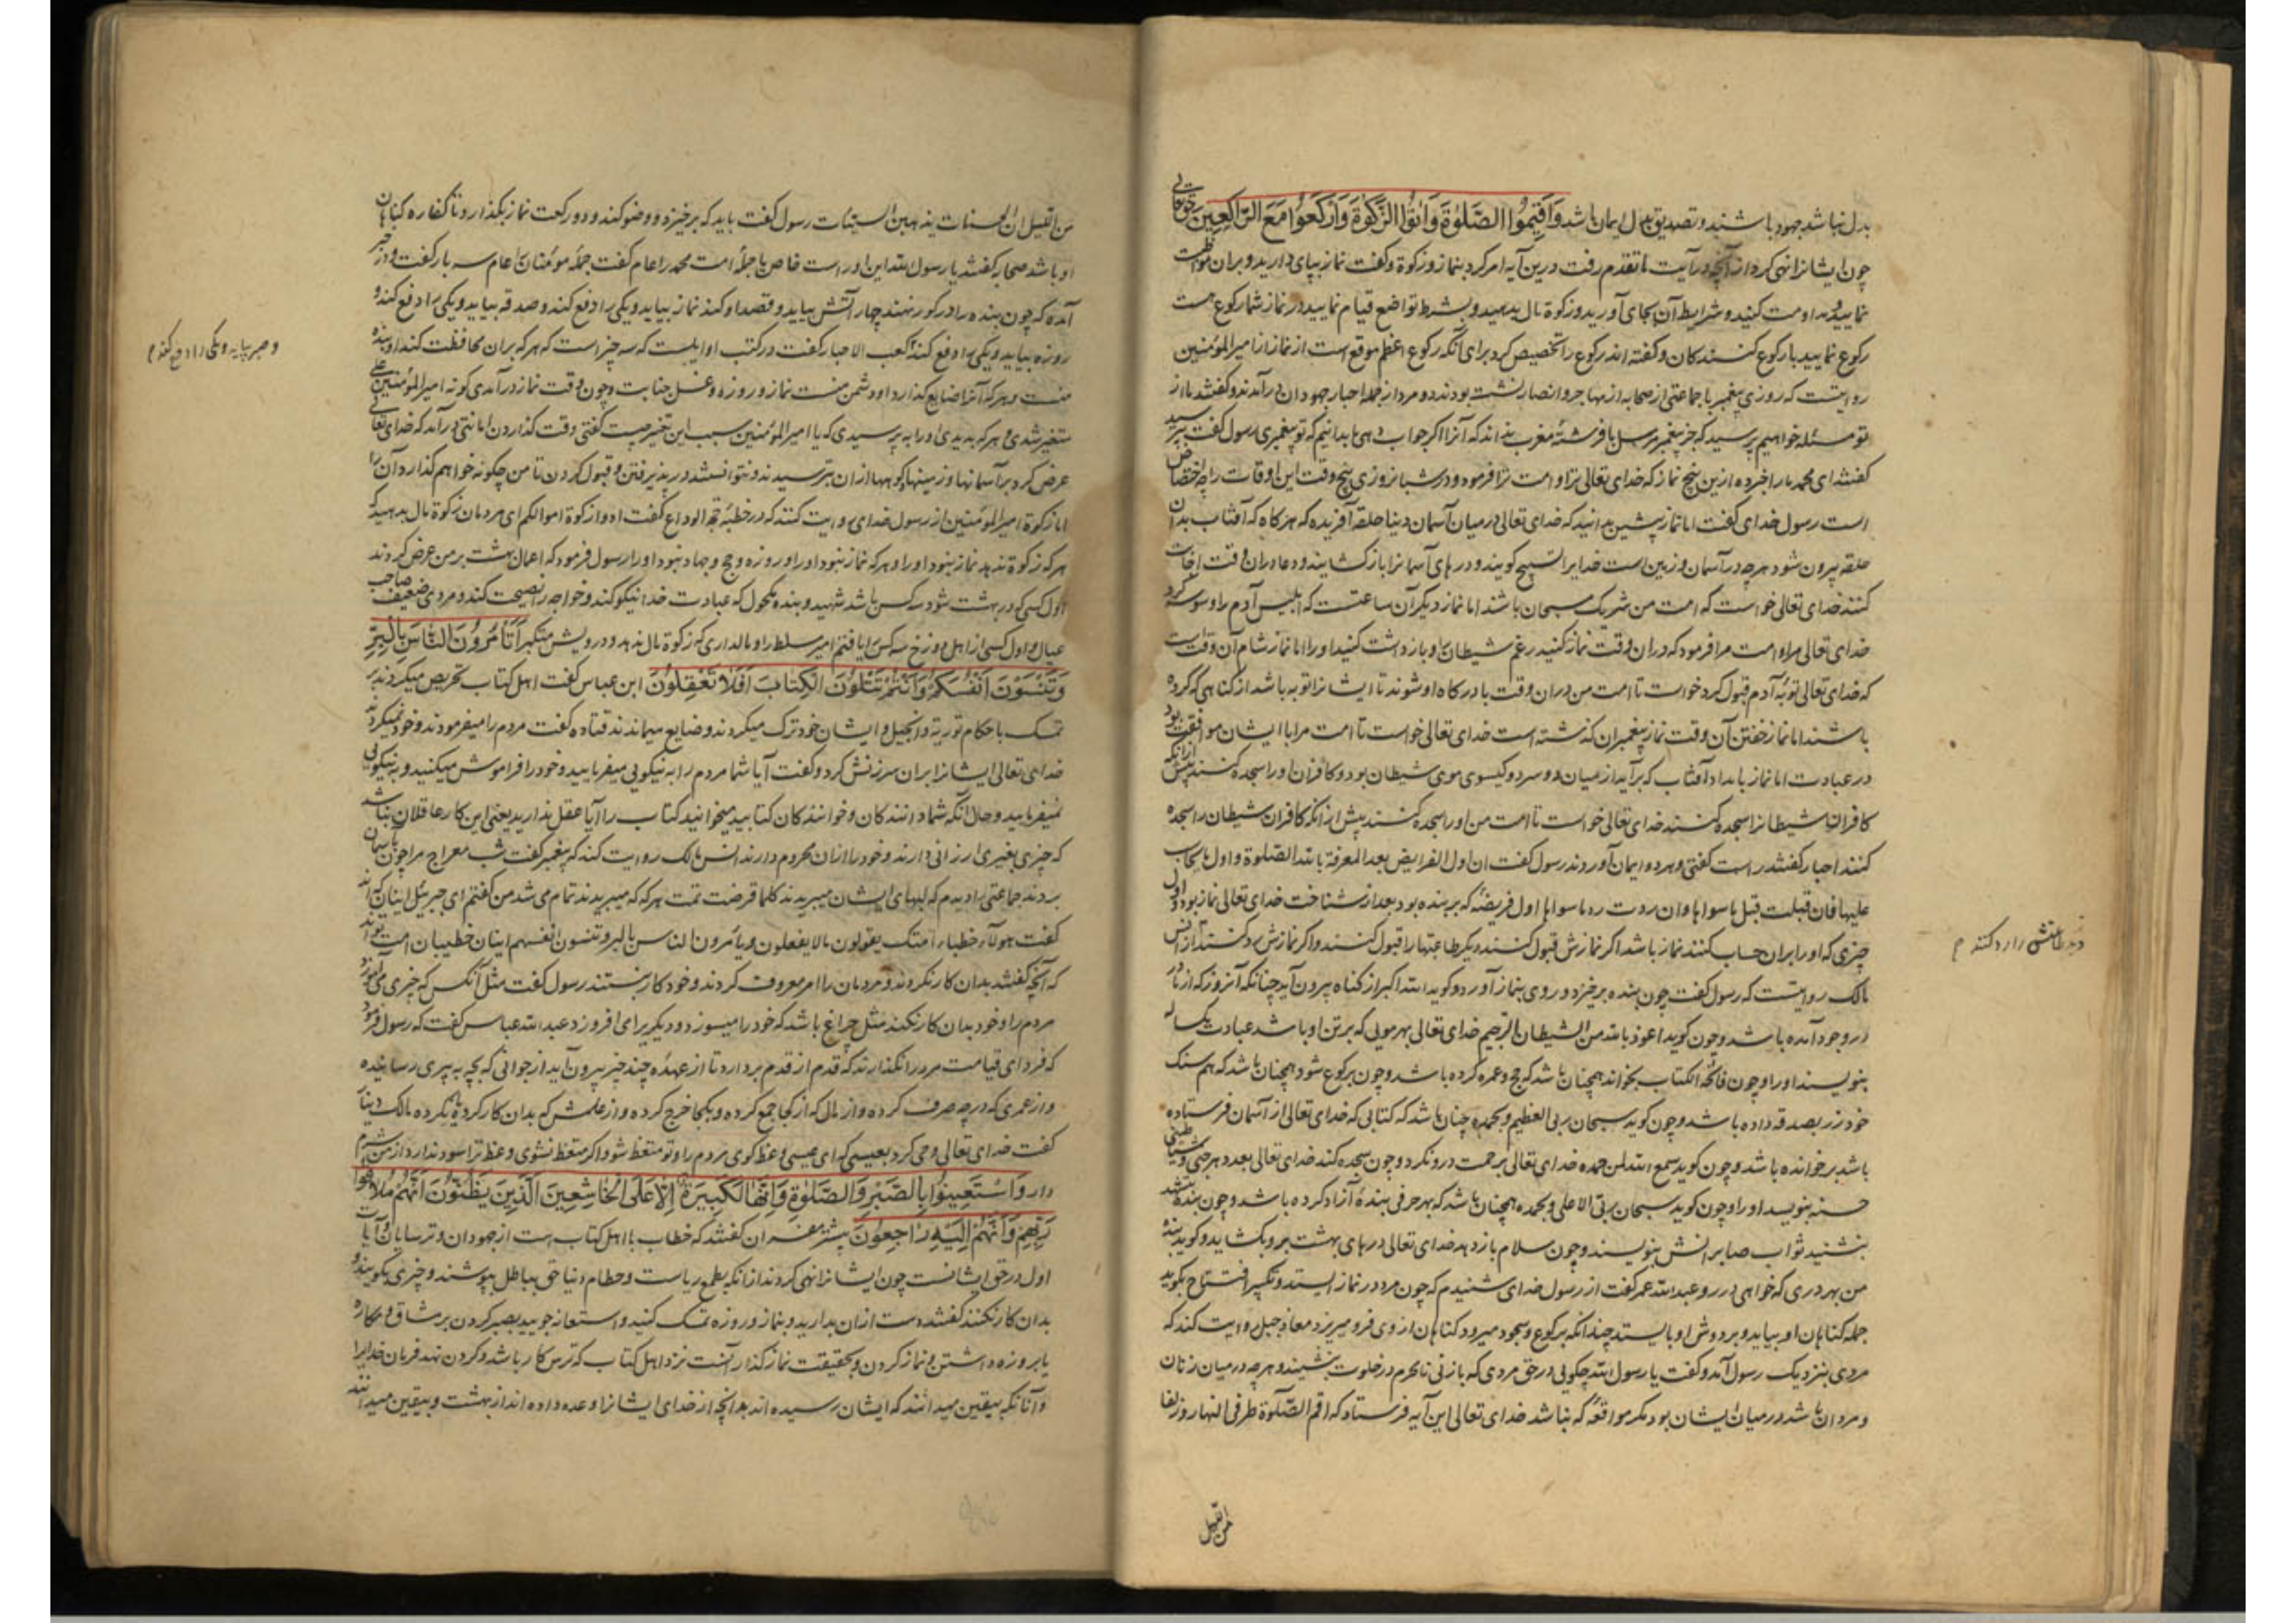 بدل نباشد جهود باشند و تصدیق بدل ایمان باشد وَاَقِیمُوا الصَّلٰوةَ وَاٰتُوا الزَّکٰوةَ وَارْکَعُوا مَعَ الرَّاکِعِینَ حق تعالی
چون ایشانرا نهی کرد از آنچه در آیت ما تقدم رفت درین آیه امر کرد بنماز و زکوة و کفت نماز بپای دارید و بران مواظبت
نمایید و مداومت کنید و شرایط آن بجای آورید و زکوة مال بدهید و بشرط تواضع قیام نمایید در نماز شما رکوع هست
رکوع نمایید با رکوع کنندکان و کفته اند رکوع را تخصیص کرد برای آنکه رکوع اعظم موقع است از نماز از امیرالمؤمنین
روایتست که روزی پیغمبر با جماعتی از صحابه از مهاجر و انصار نشسته بودند دو مرد از جمله احبار جهودان درآمدند و کفتند ما از
تو مسئله خواهیم پرسید که جز پیغمبر مرسل یا فرشتهٔ مقرب نداند که آنرا اکر جواب دهی ما بدانیم که تو پیغمبری رسول کفت بپرسید
کفتند ای محمد ما را خبر ده ازین پنج نماز که خدای تعالی برتو و امت ترا فرمود و در شبانروزی پنج وقت این اوقات را چه اختصاص
است رسول خدای کفت اما نماز پیشین بدانید که خدای تعالی در میان آسمان دنیا حلقه آفریده که هرکاه که آفتاب بدان
حلقه بیرون شود هرچه در آسمان و زمین است خدایرا تسبیح کویند و درهای آسمانرا باز کشایند و دعا دران وقت اجابت
کنند خدای تعالی خواست که امت من شریک مسبحان باشند اما نماز دیکر آن ساعتست که ابلیس آدم را وسوسه کرد
خدای تعالی مرا و امت مرا فرمود که دران وقت نماز کنید رغم شیطان را و بازداشت کنید او را اما نماز شام آن وقت است
که خدای تعالی توبهٔ آدم قبول کرد خواست تا امت من دران وقت با درکاه او شوند تا ایشانرا توبه باشد از کناهی که کرده
باشند اما نماز خفتن آن وقت نماز پیغمبران کذشته است خدای تعالی خواست تا امت مرا با ایشان موافقت بود
در عبادت اما نماز بامداد آفتاب که برآید از میان دو سرو کیسوی موی شیطان بود و کافران او را سجده کنند پیش ازآنکه
کافران شیطانرا سجده کنند خدای تعالی خواست تا امت من او را سجده کنند پیش ازانکه کافران شیطان را سجده
کنند احبار کفتند راست کفتی و هر دو ایمان آوردند رسول کفت ان اول الفرایض بعد المعرفة بالله الصلوة و اول ما یحاسب
علیها فان قبلت قبل ما سواها و ان ردت رد ما سواها اول فریضهٔ که بر بنده بود بعد از شناخت خدای تعالی نماز بود و اول
چیزی که او را بران حساب کنند نماز باشد اکر نمازش قبول کنند دیکر طاعتها را قبول کنند و اکر نمازش رد کنند از انس
مالک روایتست که رسول کفت چون بنده برخیزد و روی بنماز آورد و کوید الله اکبر از کناه بیرون آید چنانکه آنروز که از مادر
در وجود آمده باشد و چون کوید اعوذ بالله من الشیطان الرجیم خدای تعالی بهر مویی که بر تن او باشد عبادت یکساله
بنویسند او را و چون فاتحة الکتاب بخواند همچنان باشد که حج و عمره کرده باشد و چون برکوع شود همچنان باشد که هم سنک
خود زر بصدقه داده باشد و چون کوید سبحان ربی العظیم و بحمده چنان باشد که کتابی که خدای تعالی از آسمان فرستاده
باشد برخوانده باشد و چون کوید سمع الله لمن حمده خدای تعالی برحمت درو نکرد و چون سجده کند خدای تعالی بعدد هر جنی و شیاطینی
حسنه بنویسد او را و چون کوید سبحان ربی الاعلی و بحمده همچنان باشد که بهر حرفی بندهٔ آزاد کرده باشد و چون بنده بتشهد
بنشنید ثواب صابرانش بنویسند و چون سلام بازدهد خدای تعالی درهای بهشت برو بکشاید و کوید بندهٔ
من بهر دری که خواهی در رو عبدالله عمر کفت از رسول خدای شنیدم که چون مرد در نماز ایستد و تکبیر افتتاح بکوید
جمله کناهان او بیاید و بر دوش او بایستد چندانکه برکوع و سجود میرود کناهان از وی فرو میریزد معاذ جبل روایت کند که
مردی بنزدیک رسول آمد و کفت یا رسول الله چکویی در حق مردی که با زنی نامحرم در خلوت بنشیند و هرچه در میان زنان
و مردان باشد در میان ایشان بود مکر مواقعهٔ که نباشد خدای تعالی این آیه فرستاد که اقم الصّلوة طرفی النهار و زلفا
من اللیل
دیکر طاعتش را رد کنند م
من اللیل ان الحسنات یذهبن السیئات رسول کفت باید که برخیزد و وضو کند و دو رکعت نماز بکذارد و تا کفاره کناهان
او باشد صحابه کفتند یا رسول الله این او راست خاص یا جملهٔ امت محمد را عام کفت جملهٔ مؤمنان را عام سه بار کفت و در خبر
آمده که چون بنده را در کور نهند چهار آتش بیاید و قصد او کند نماز بیاید و یکی را دفع کند و صدقه بیاید و یکی را دفع کند و
روزه بیاید و یکی را دفع کند کعب الاحبار کفت در کتب اوایلست که سه چیز است که هرکه بران محافظت کند او بنده
منست و هرکه آنرا ضایع کذارد او دشمن منست نماز و روزه و غسل جنابت و چون وقت نماز درآمدی کونه امیرالمؤمنین علی
متغیر شدی و هرکه بدیدی او را بپرسیدی که یا امیرالمؤمنین سبب این تغیر چیست کفتی وقت کذاردن امانتی درآمد که خدای تعالی
عرض کرد برآسمانها و زمینها و کوهها ازان بترسیدند و نتوانستند در پذیرفتن و قبول کردن تا من چکونه خواهم کذارد آن را
اما زکوة امیرالمؤمنین از رسول خدای روایت کنند که در خطبهٔ حجة الوداع کفت ادوا زکوة اموالکم ای مردمان زکوة مال بدهید که
هرکه زکوة ندهد نماز نبود او را و هرکه نماز نبود او را و روزه و حج و جهاد نبود او را رسول فرمود که اعمال بهشت بر من عرض کردند
اول کسی که در بهشت شود سه کس باشد شهید و بنده مکحول که عبادت خدا نیکو کند و خواجه را نصیحت کند و مردی ضعیف صاحب
عیال و اول کسی از اهل دوزخ سه کس را یافتم امیر مسلط را و مالداری که زکوة مال ندهد و درویش متکبر اَتَاْمُرُونَ النَّاسَ بِالْبِرِّ
وَتَنْسَوْنَ اَنْفُسَکُمْ وَاَنْتُمْ تَتْلُونَ الْکِتَابَ اَفَلَا تَعْقِلُونَ ابن عباس کفت اهل کتاب تحریص میکردند بر
تمسک باحکام توریة و انجیل و ایشان خود ترک میکردند و ضایع میماندند قتاده کفت مردم را میفرمودند و خود نمیکردند
خدای تعالی ایشانرا بران سرزنش کرد و کفت آیا شما مردم را به نیکویی میفرمایید و خود را فراموش میکنید و به نیکویی
نمیفرمایید و حال آنکه شما دانندکان و خوانندکان کتابید میخوانید کتاب را آیا عقل ندارید یعنی این کار عاقلان نباشد
که چیزی بغیری ارزانی دارند و خود را ازان محروم دارند انس مالک روایت کند که پیغمبر کفت شب معراج مرا چون بآسمان
بردند جماعتی را دیدم که لبهای ایشان میبریدند کلما قرضت تمت هرکه که میبریدند تمام می شد من کفتم ای جبرئیل اینان که اند
کفت هولاء خطباء امتک یقولون مالا یفعلون و یأمرون الناس بالبر و تنسون انفسهم اینان خطیبان امت تواند
که آنچه کفتند بدان کار نکردند و مردمان را امر معروف کردند و خود کار نبستند رسول کفت مثل آنکس که خیری می آموزد
مردم را و خود بدان کار نکند مثل چراغ باشد که خود را میسوزد و دیکر برا می افروزد عبدالله عباس کفت که رسول فرمود
که فردای قیامت مرد را نکذارند که قدم از قدم بردارد تا از عهدهٔ چند چیز بیرون آید از جوانی که بچه به پیری رسانیده
و از عمری که در چه صرف کرده و از مال که از کجا جمع کرده و بکجا خرج کرده و از علمش که بدان کار کرده یا نکرده مالک دینار
کفت خدای تعالی وحی کرد بعیسی که ای عیسی وعظ کوی مردم را و تو متعظ شو و اکر متعظ نشوی وعظ ترا سود ندارد از من شرم
دار وَاسْتَعِینُوا بِالصَّبْرِ وَالصَّلٰوةِ وَاِنَّهَا لَکَبِیرَةٌ اِلَّا عَلَی الْخَاشِعِینَ الَّذِینَ یَظُنُّونَ اَنَّهُمْ مُلَاقُوا
رَبِّهِمْ وَاَنَّهُمْ اِلَیْهِ رَاجِعُونَ بیشتر مفسران کفتند که خطاب با اهل کتاب است از جهودان و ترسایان و آیات
اول در حق ایشانست چون ایشانرا نهی کردند ازانکه بطمع ریاست و حطام دنیا حق بباطل بپوشند و چیزی بکویند و
بدان کار نکنند کفتند دست ازان بدارید و بنماز و روزه تمسک کنید و استعانه جویید بصبر کردن بر مشاق و مکاره
یا بروزه داشتن و نماز کردن و بحقیقت نماز کذار آنست نزد اهل کتاب که ترس کار باشد و کردن نهد فرمان خدایرا
و آنانکه بیقین میدانند که ایشان رسیده اند بدانچه از خدای ایشانرا وعده داده اند از بهشت و بیقین میدانند
و صبر بیاید و یکی را دفع کند م